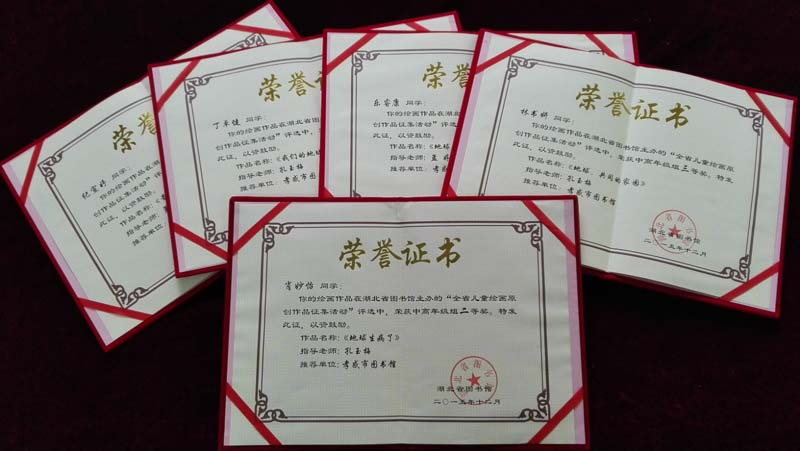 荣誉证
纪宜婷 同学:
你的绘画作品在湖
创作品征集活动"
此证,以资鼓励。
作品名称:《
指导老师:孔玉梅
推荐单位:孝感市
荣誉证
同学:
你的绘画作品在湖北省图
创作品征集活动"评选中,
此证,以资鼓励。
作品名称:《我们的地球
指导老师:孔玉梅
推荐单位:孝感市图
荣誉证
乐睿康 同学:
你的绘画作品在湖北省图
创作品征集活动"评选中,
此证,以资鼓励。
作品名称:《地球
指导老师:孟婷
推荐单位:孝感
荣誉证书
林书妍 同学:
你的绘画作品在湖北省图书馆主办的"全省儿童绘画原
创作品征集活动"评选中,荣获中高年级组三等奖。特发
此证,以资鼓励。
作品名称:《地球,共同的家园》
指导老师:孔玉梅
推荐单位:孝感市图书馆
湖北省图书馆
二〇一五年十二月
荣誉证书
肖妙怡 同学:
你的绘画作品在湖北省图书馆主办的"全省儿童绘画原
创作品征集活动"评选中,荣获中高年级组二等奖。特发
此证,以资鼓励。
作品名称:《地球生病了》
指导老师:孔玉梅
推荐单位:孝感市图书馆
湖北省图书馆
二〇一五年十二月